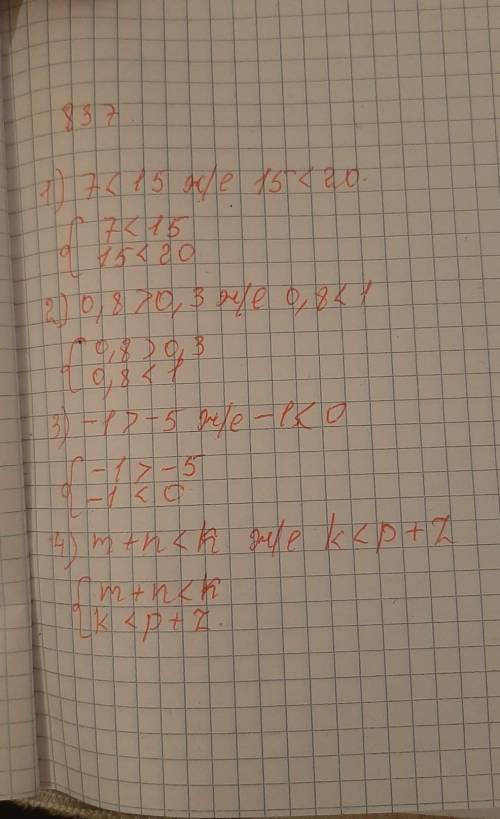 837
1) 7 < 15 ж/е 15 < 20.
{ 7 < 15
15 < 20
2) 0,8 > 0,3 ж/е 0,8 < 1
{ 0,8 > 0,3
0,8 < 1
3) -1 > -5 ж/е -1 < 0
{ -1 > -5
-1 < 0
4) m + n < k ж/е k < p + z
{ m + n < k
k < p + z.